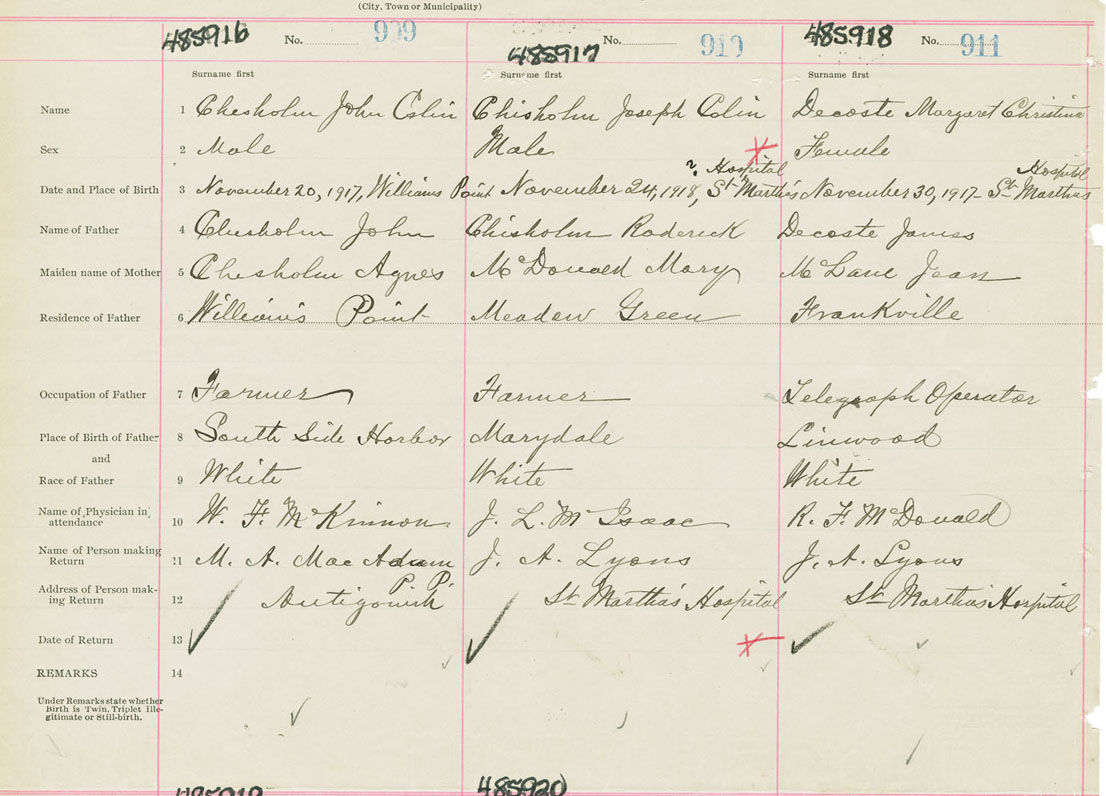 (City, Town or Municipality)
485916 No. 909 485917 No. 910 485918 No. 911
Surname first Surname first Surname first
Name 1 Chesholm John Colin Chisholm Joseph Colin Decoste Margaret Christina
Sex 2 Male Male Female
? Hospital Hospital
Date and Place of Birth 3 November 20, 1917, Williams Point November 24, 1918, St Martha's November 30, 1917- St Marthas
Name of Father 4 Chesholm John Chisholm Roderick Decoste James
Maiden name of Mother 5 Chesholm Agnes McDonald Mary McLane Jean
Residence of Father 6 William's Point Meadow Green Frankville
Occupation of Father 7 Farmer Farmer Telegraph Operator
Place of Birth of Father 8 South Side Harbor Marydale Linwood
and
Race of Father 9 White White White
Name of Physician in
attendance 10 W. F. McKinnon J. L. McIsaac R. F. McDonald
Name of Person making
Return 11 M. A. MacAdam J. A. Lyons J. A. Lyons
P. P.
Address of Person mak-
ing Return 12 Antigonish St Martha's Hospital St Martha's Hospital
Date of Return 13
REMARKS 14
Under Remarks state whether
Birth is Twin, Triplet Ille-
gitimate or Still-birth.
485920